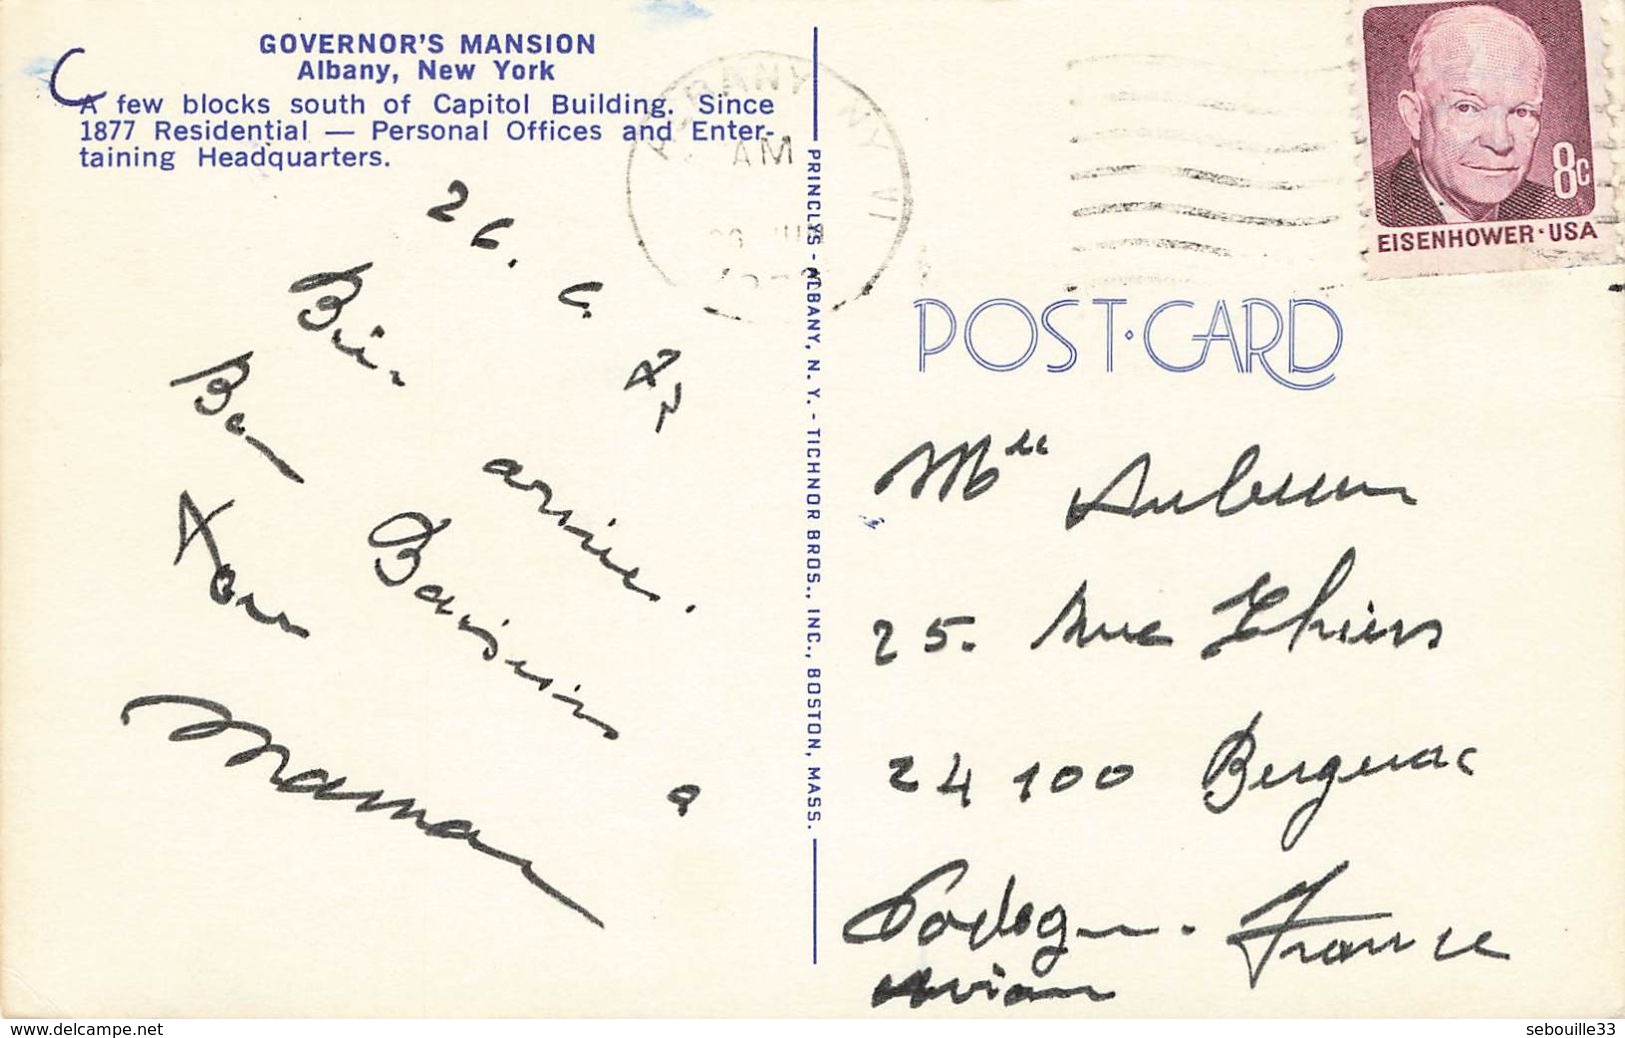 GOVERNOR'S MANSION
Albany, New York
A few blocks south of Capitol Building. Since
1877 Residential — Personal Offices and Enter-
taining Headquarters.
26. 6.
Bien arrivée.
Bon Baisers à
Tous
Maman
PRINCLYS - ALBANY, N. Y. - TICHNOR BROS., INC., BOSTON, MASS.
ALBANY NY
AM
8c
EISENHOWER·USA
POST·CARD
Mlle
25. Rue Thiers
24100 Bergerac
Dordogne. France
Avion
www.delcampe.net
sebouille33